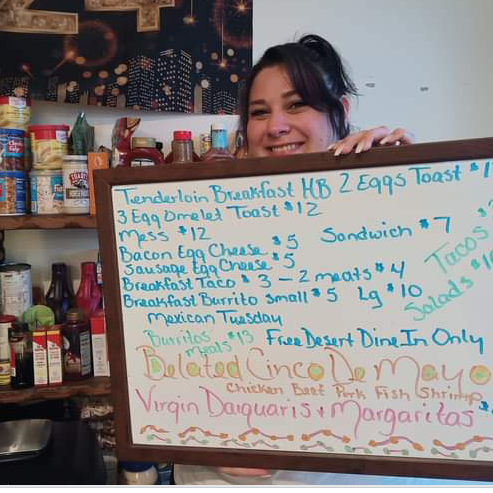 24
Tenderloin Breakfast HB 2 Eggs Toast
3 Egg Omelet Toast $12
Mess $12
Sandwich $7
Bacon Egg Cheese $5
Sausage Egg Cheese $5
Breakfast Taco $3 - 2 meats $4
Breakfast Burrito Small $5 Lg $10
Tacos
Salads
Mexican Tuesday
Burritos
Meals $13
Free Desert Dine In Only
Belated Cinco De Mayo
Chicken Beef Pork Fish Shrimp
Virgin Daiquaris + Margaritas